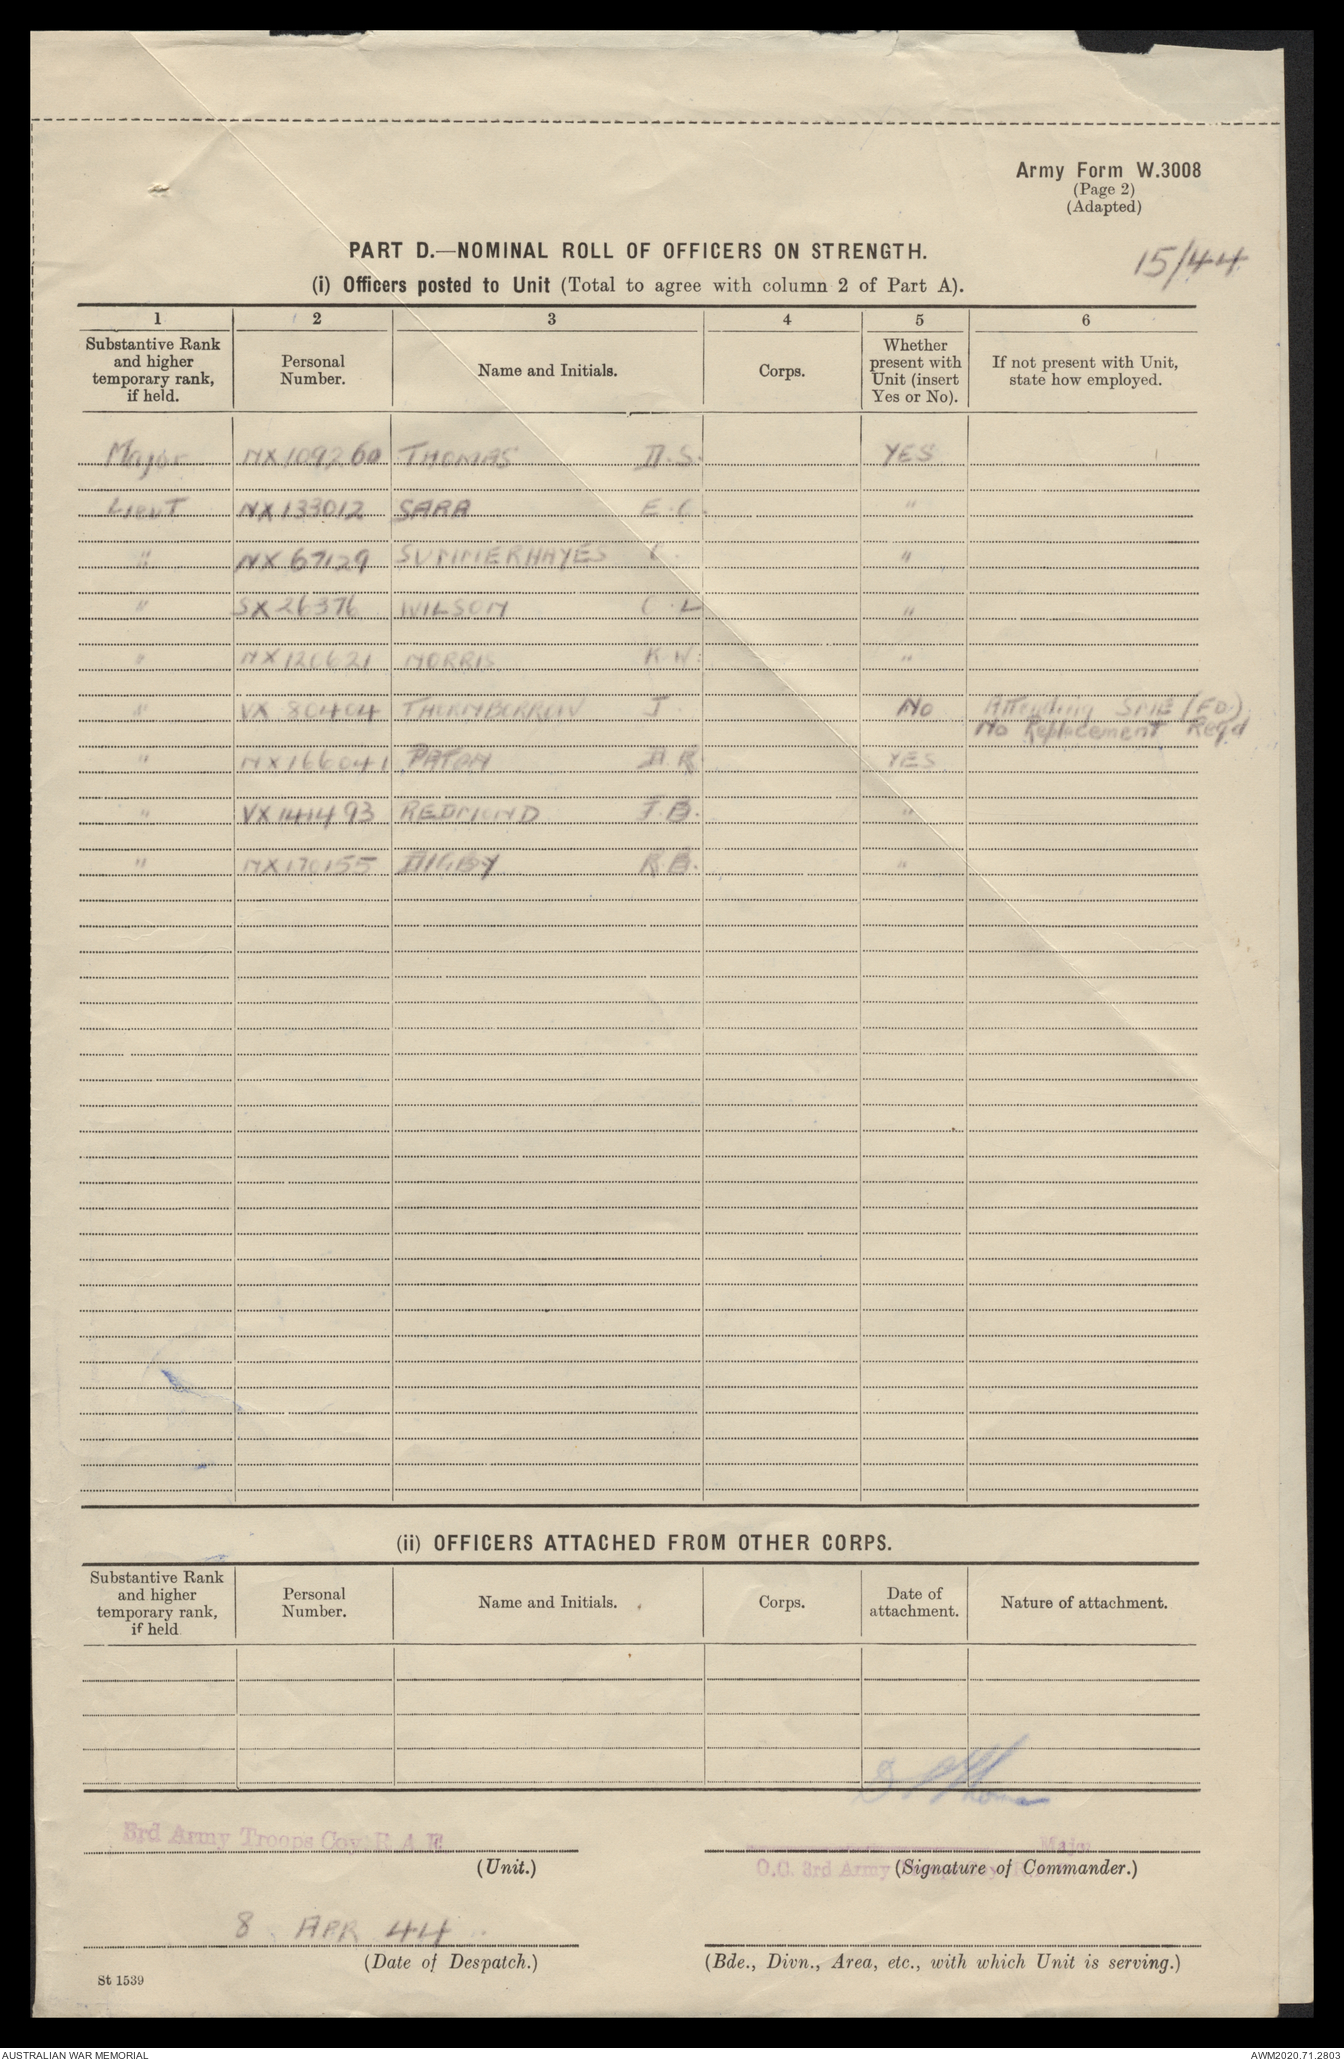 Army Form W.3008
(Page 2)
(Adapted)
PART D.—NOMINAL ROLL OF OFFICERS ON STRENGTH.
15/44
(i) Officers posted to Unit (Total to agree with column 2 of Part A).
1 2 3 4 5 6
Substantive Rank and higher temporary rank, if held. Personal Number. Name and Initials. Corps. Whether present with Unit (insert Yes or No). If not present with Unit, state how employed.
Major NX109260 THOMAS D.S. YES
Lieut NX133012 SARA E.C. "
" NX67129 SUMMERHAYES C. "
" SX26376 WILSON C.L "
" NX120621 MORRIS K.W. "
" VX80404 THORNBORROW J. No Attending SME (FD)
No Replacement Reqd
" NX166041 PATON D.R. YES
" VX141493 REDMOND J.B. "
" NX170155 DIGBY R.B. "
(ii) OFFICERS ATTACHED FROM OTHER CORPS.
Substantive Rank and higher temporary rank, if held Personal Number. Name and Initials. Corps. Date of attachment. Nature of attachment.
D S Thomas
3rd Army Troops Coy R.A.E. Major
(Unit.) O.C. 3rd Army (Signature of Commander.)
8 APR 44
(Date of Despatch.) (Bde., Divn., Area, etc., with which Unit is serving.)
St 1539
AUSTRALIAN WAR MEMORIAL AWM2020.71.2803